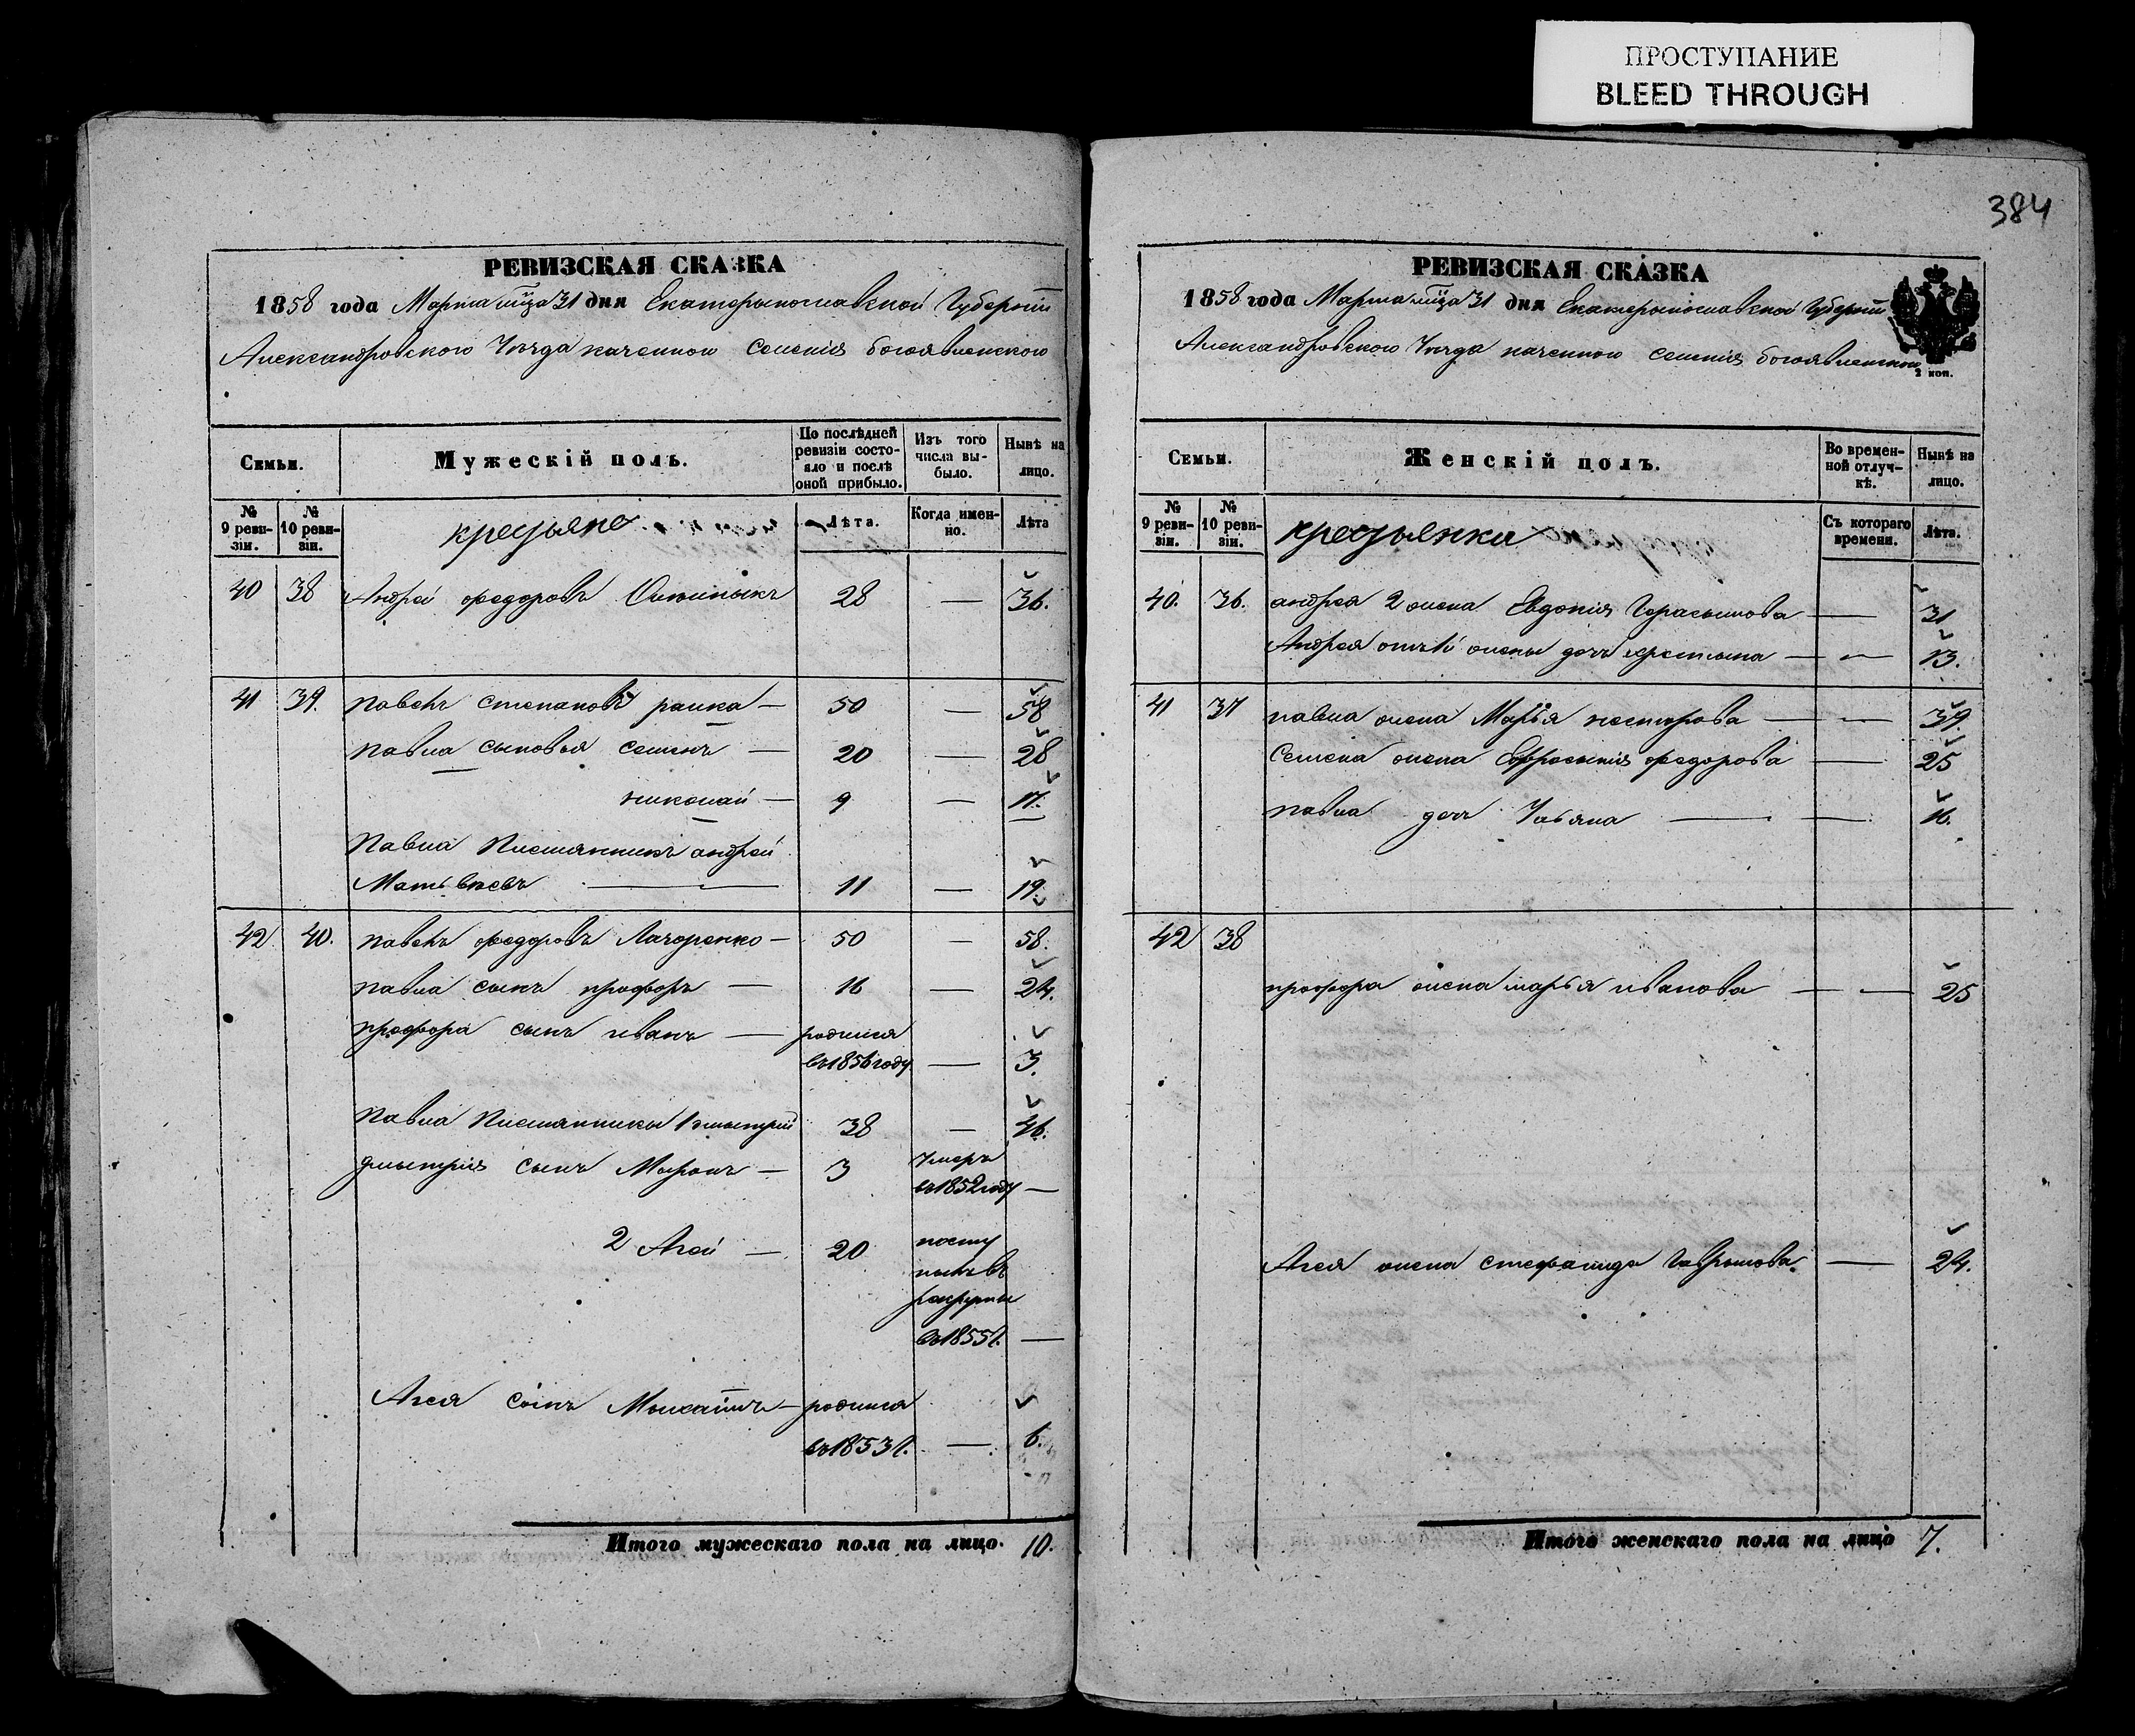 ПРОСТУПАНИЕ
BLEED THROUGH
384
РЕВИЗСКАЯ СКАЗКА
1858 года Марта мца 31 дня Екатерынославской Губернии
Александровского Уезда казенного селения богоявленского
Семьи.
Мужескій полъ.
По послѣдней ревизіи состояло и послѣ оной прибыло.
Изъ того числа выбыло.
Нынѣ на лицо.
№ 9 ревизіи.
№ 10 ревизіи.
крестьяне
Лѣта.
Когда именно.
Лѣта
40 38 Андрей федоровъ 28 — 36.
41 39. павелъ степановъ — 50 — 58
павла сыновья семенъ — 20 — 28
николай — 9 — 17.
Павла племянникъ андрей
Матвѣевъ — 11 — 19.
42 40. павелъ федоровъ Лазоренко — 50 — 58.
павла сынъ профоръ — 16 — 24.
профора сынъ иванъ — родился
въ 1856 году — 3.
павла племянники 1 дмытрий 38 — 46.
дмытрия сынъ Миронъ — 3 умеръ
въ 1852 году —
2 Агей — 20 посту
пилъ въ
рекруты
въ 1855 г. —
Агея сынъ Мыхаилъ — родился
въ 1853 г. — 6.
Итого мужескаго пола на лицо. 10.
РЕВИЗСКАЯ СКАЗКА
1858 года Марта мца 31 дня Екатерынославской Губернии
Александровского Уезда казенного селения богоявленского
2 коп.
Семьи.
Женскій полъ.
Во временной отлучкѣ.
Нынѣ на лицо.
№ 9 ревизіи.
№ 10 ревизіи.
крестьянки
Съ котораго времени.
Лѣта.
40. 36. андрея 2 жена Евдокия Герасымова — 31
Андрея отъ 1й жены дочь христына — — 13.
41 37 павла жена Марья нестерова — — 39.
Семена жена Евфросыния федорова — 25
павла дочь Ульяна — — 16.
42 38
профора жена марья иванова — — 25
Агея жена стефанида Гаврылова. — 24.
Итого женскаго пола на лицо 7.